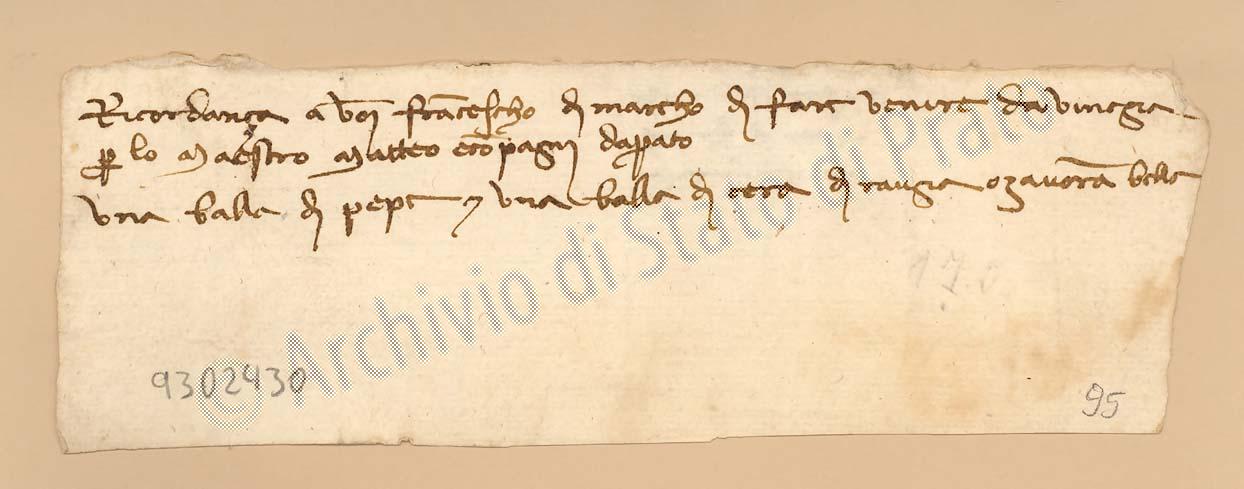 Ricordança a voi francescho di marcho di fare venire da vinegia
per lo Maestro Matteo e conpagni da prato
una balla di pepe e una balla di cera di raugia o zavorra bella
170
9302430
95
© Archivio di Stato di Prato